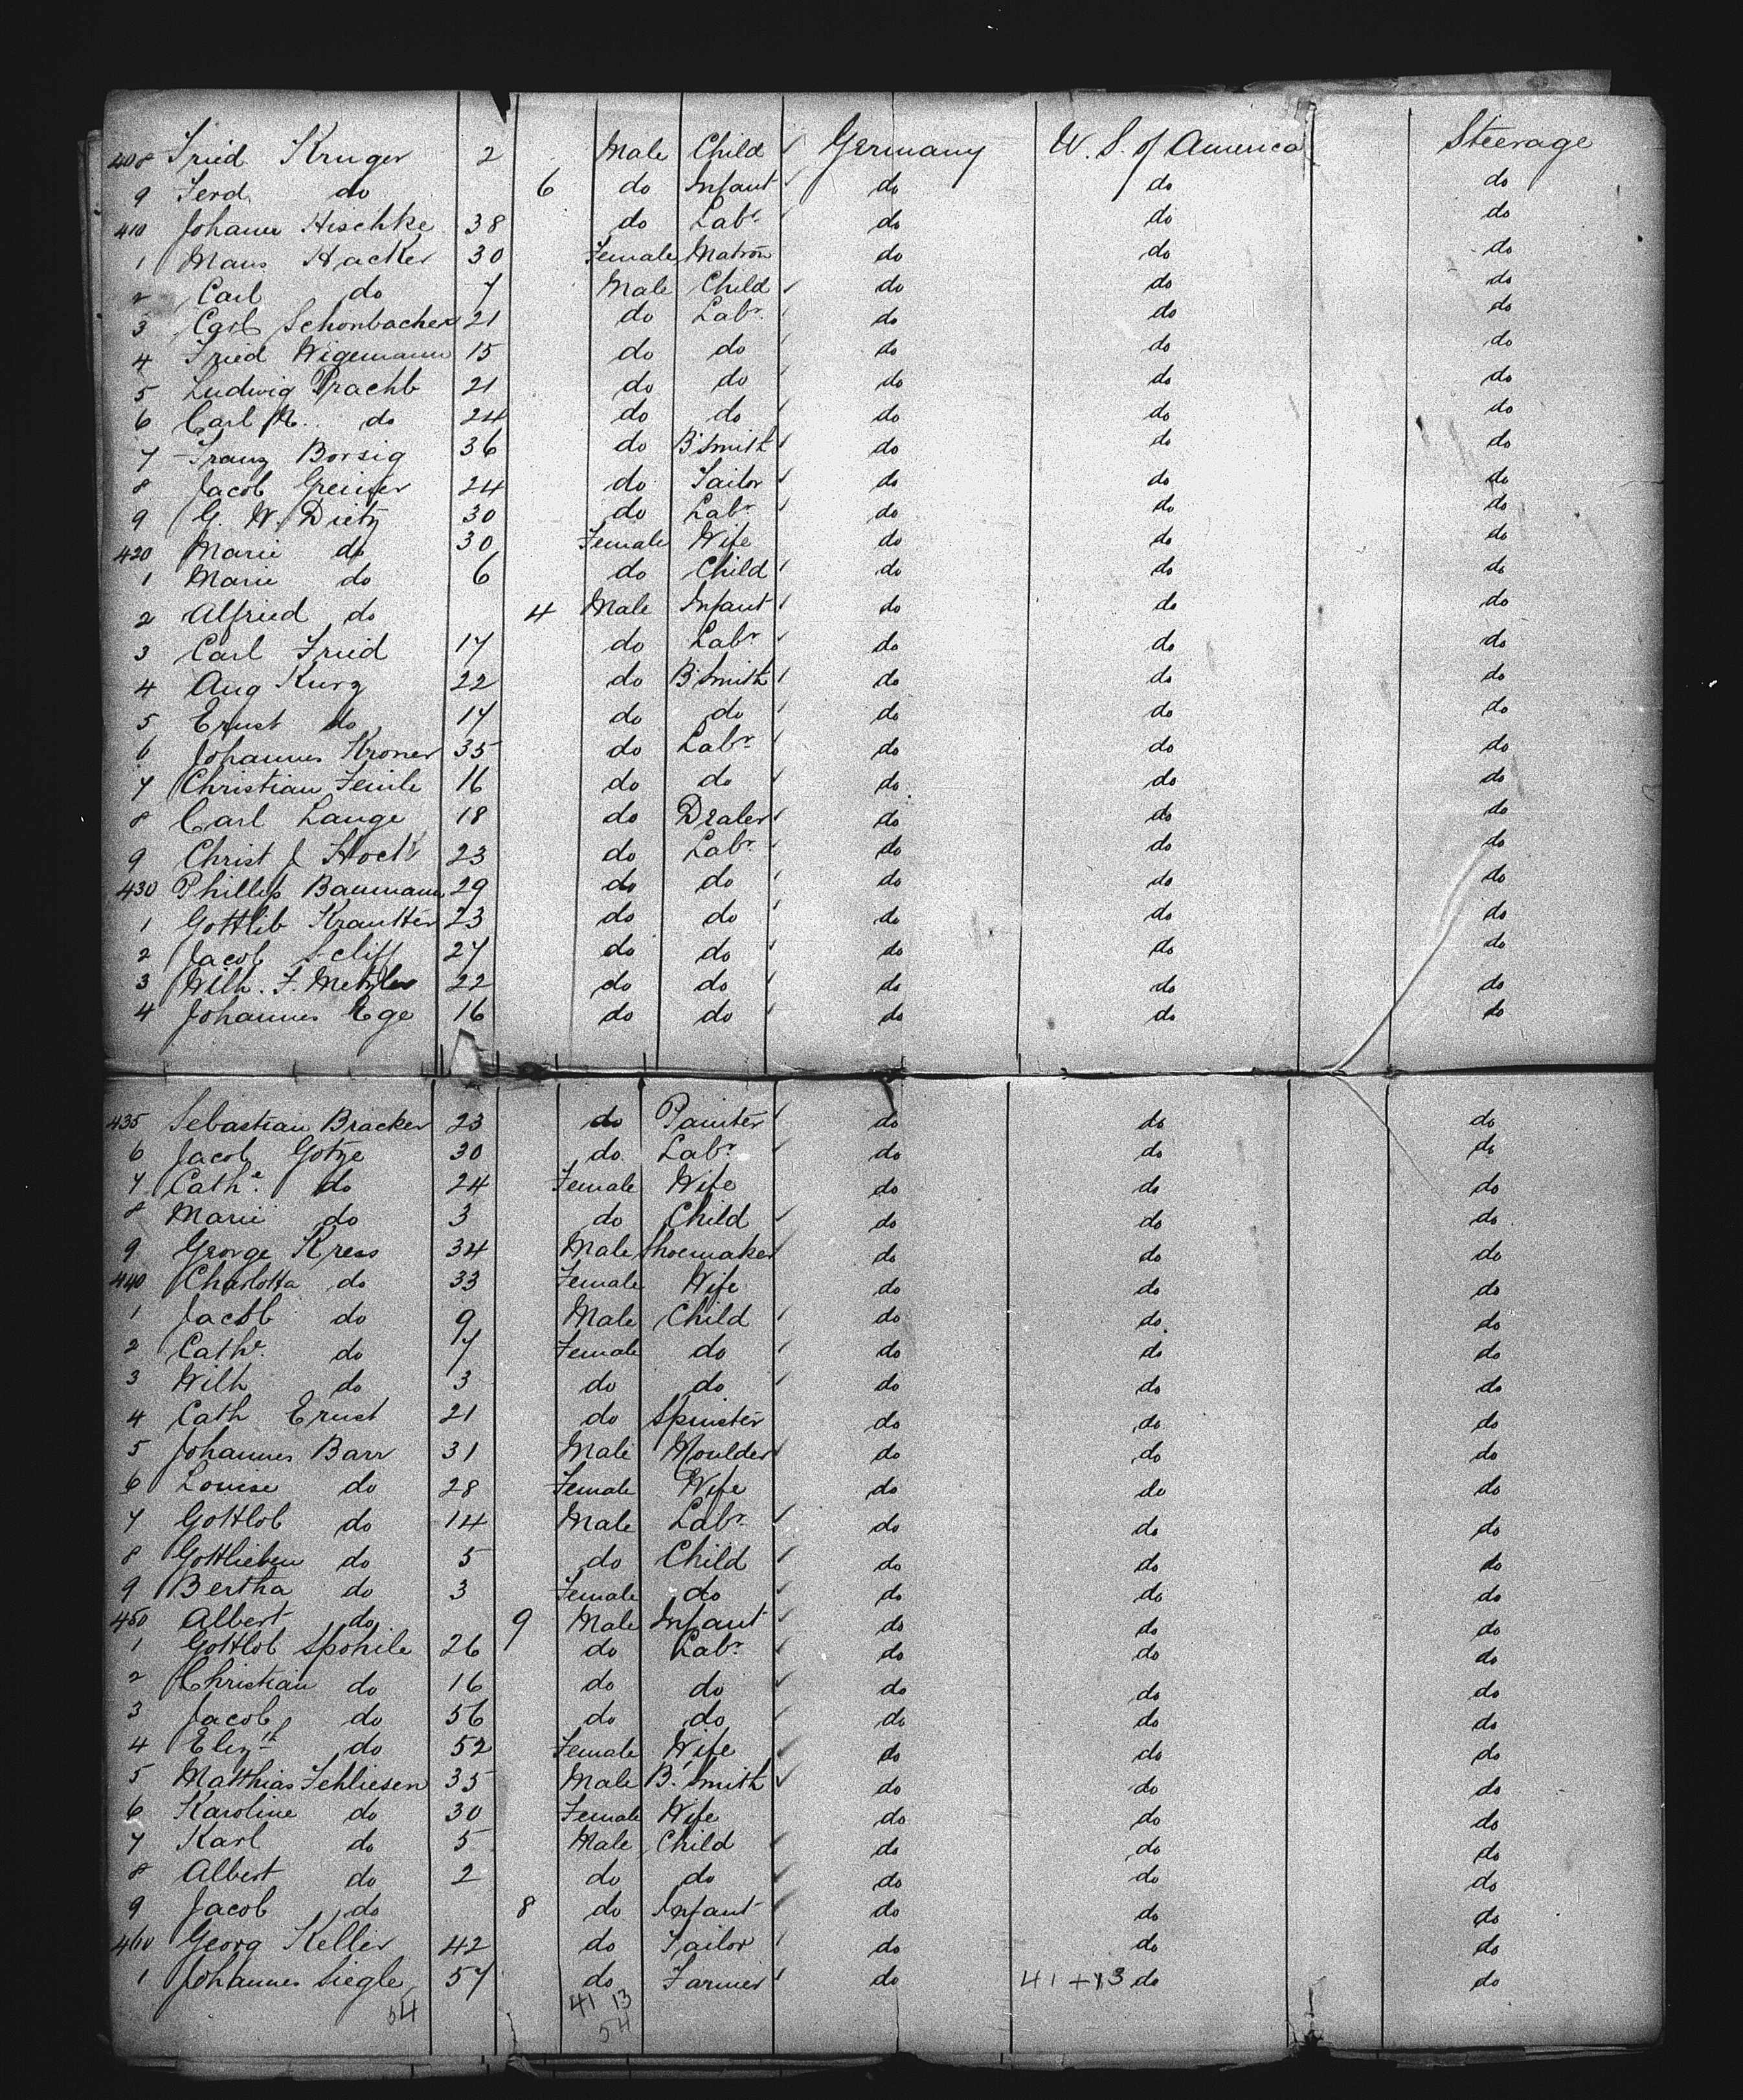 408 Fried Kruger 2 Male Child Germany U. S. of America Steerage
9 Ferd do 6 do Infant do do do
410 Johann Hischke 38 do Labr do do do
1 Maus Hacker 30 Female Matron do do do
2 Carl do 7 Male Child do do do
3 Carl Schonbacher 21 do Labr do do do
4 Fried Wigemann 15 do do do do do
5 Ludwig Prachb 21 do do do do do
6 Carl M. do 24 do do do do do
7 Franz Borsig 36 do B'Smith do do do
8 Jacob Greiner 24 do Tailor do do do
9 G. W. Dietz 30 do Labr do do do
420 Marie do 30 Female Wife do do do
1 Marie do 6 do Child do do do
2 Alfried do 4 Male Infant do do do
3 Carl Fried 17 do Labr do do do
4 Aug Kurz 22 do B'Smith do do do
5 Ernst do 17 do do do do do
6 Johannes Kroner 35 do Labr do do do
7 Christian Feinle 16 do do do do do
8 Carl Lange 18 do Dealer do do do
9 Christ J Hock 23 do Labr do do do
430 Phillip Baumann 29 do do do do do
1 Gottlib Krautter 23 do do do do do
2 Jacob 27 do do do do do
3 Wilh. F. Metzler 22 do do do do do
4 Johannes Ege 16 do do do do do
435 Sebastian Bracker 23 do Painter do do do
6 Jacob Gotze 30 do Labr do do do
7 Cathe do 24 Female Wife do do do
8 Marie do 3 do Child do do do
9 George Kress 34 Male Shoemaker do do do
440 Charlotta do 33 Female Wife do do do
1 Jacob do 9 Male Child do do do
2 Cathe do 7 Female do do do do
3 Wilh do 3 do do do do do
4 Cath Ernst 21 do Spinster do do do
5 Johannes Barr 31 Male Moulder do do do
6 Louise do 28 Female Wife do do do
7 Gottlob do 14 Male Labr do do do
8 Gottlieben do 5 do Child do do do
9 Bertha do 3 Female do do do do
450 Albert do 9 Male Infant do do do
1 Gottlob Spohile 26 do Labr do do do
2 Christian do 16 do do do do do
3 Jacob do 56 do do do do do
4 Elizth do 52 Female Wife do do do
5 Matthias Schliesen 35 Male B. Smith do do do
6 Karoline do 30 Female Wife do do do
7 Karl do 5 Male Child do do do
8 Albert do 2 do do do do do
9 Jacob do 8 do Infant do do do
460 Georg Keller 42 do Tailor do do do
1 Johannes Siegle 57 do Farmer do 41 + 13 do do
54 41 13
54